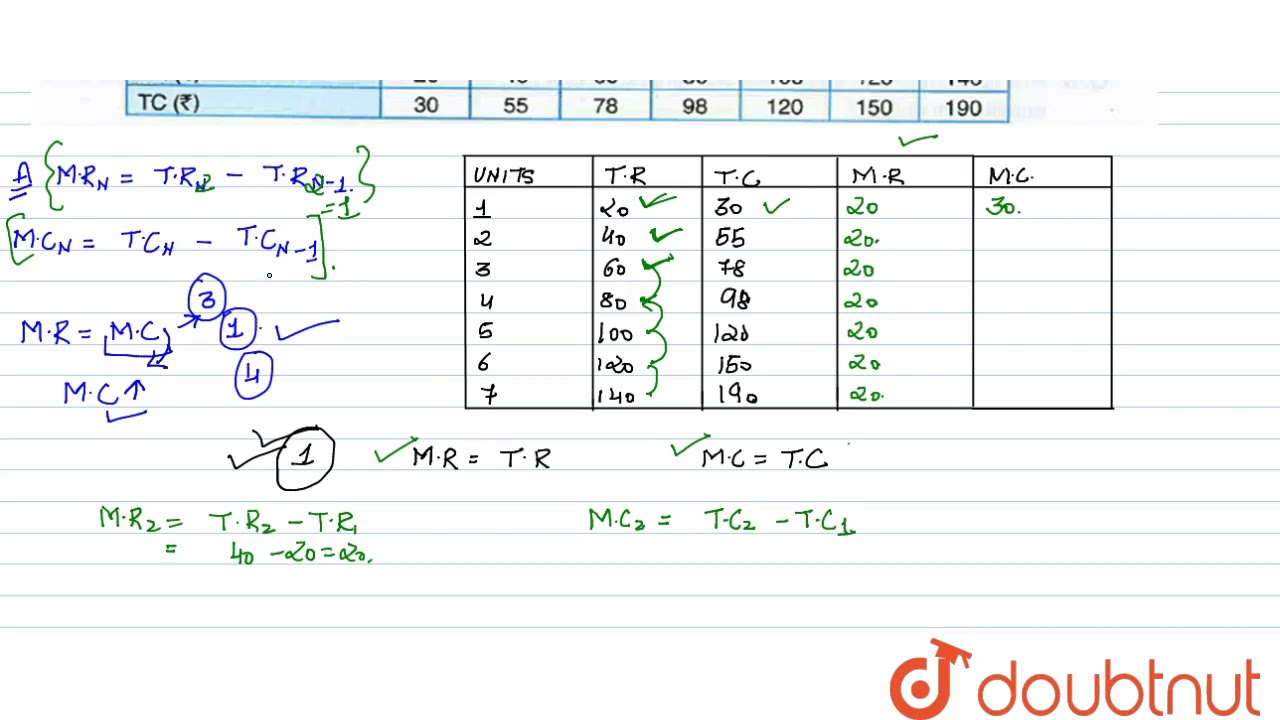 TC (₹) 30 55 78 98 120 150 190
A {M.R_N = T.R_N - T.R_N-1}
2 2 =1
[M.C_N = T.C_N - T.C_N-1].
3
M.R = M.C 1.
4
M.C↑
UNITS T.R T.C M.R M.C.
1 20 30 20 30.
2 40 55 20.
3 60 78 20
4 80 98 20
5 100 120 20
6 120 150 20
7 140 190 20.
1 M.R = T.R M.C = T.C
M.R2 = T.R2 - T.R1 M.C2 = T.C2 - T.C1
= 40 - 20 = 20.
doubtnut